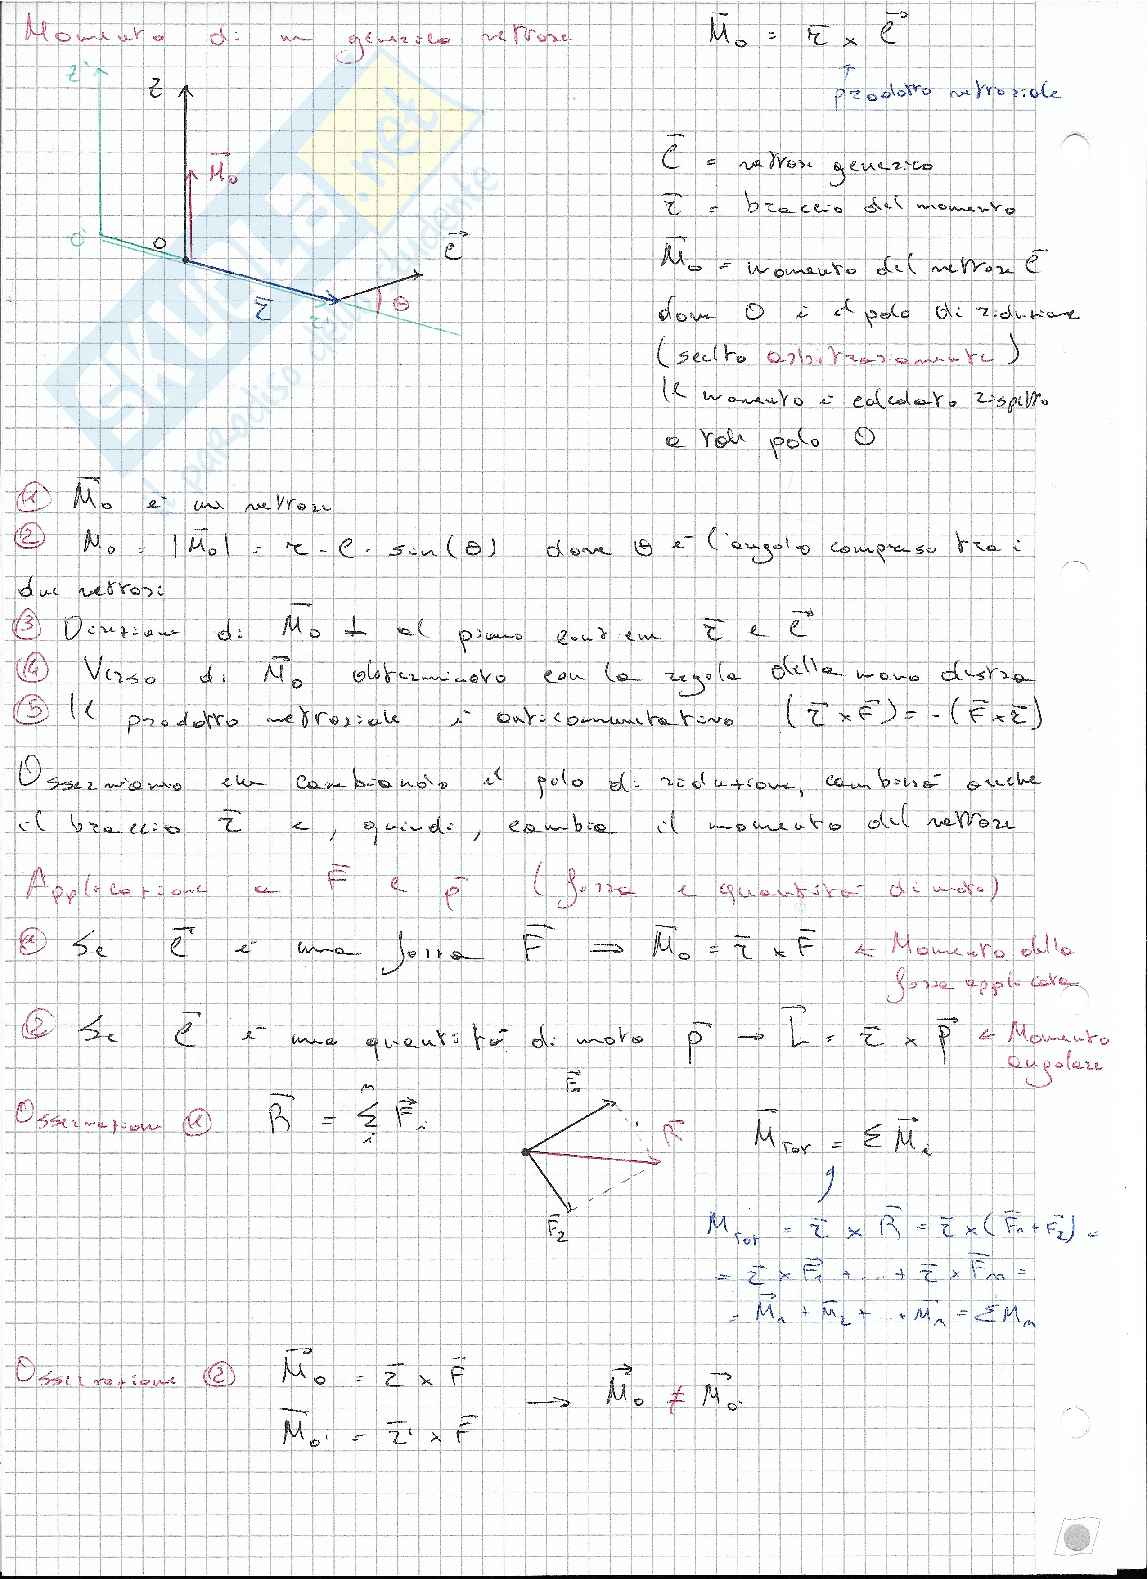 Momento di un generico vettore
M̄₀ = r̄ × C⃗
prodotto vettoriale
z'
z
M⃗₀
O'
O
r̄
r̄'
C⃗
θ
C̄ = vettore generico
r̄ = braccio del momento
M̄₀ = momento del vettore C̄
dove O è il polo di riduzione
(scelto arbitrariamente)
Il momento è calcolato rispetto
a tale polo O
SKUOLA.net
il paradiso dello studente
① M̄₀ è un vettore
② M₀ = |M̄₀| = r · C · sin(θ) dove θ è l'angolo compreso tra i
due vettori
③ Direzione di M̄₀ ⊥ al piano contenente r̄ e C⃗
④ Verso di M̄₀ determinato con la regola della mano destra
⑤ Il prodotto vettoriale è anticommutativo (r̄ × F̄) = -(F̄ × r̄)
Osserviamo che cambiando il polo di riduzione, cambierà anche
il braccio r̄ e, quindi, cambia il momento del vettore
Applicazione a F̄ e p̄ (forza e quantità di moto)
① Se C⃗ è una forza F̄ ⇒ M̄₀ = r̄ × F̄ ← Momento della
forza applicata
② Se C⃗ è una quantità di moto p⃗ → L⃗ = r̄ × p⃗ ← Momento
angolare
Osservazione ① R⃗ = Σᵢⁿ F⃗ᵢ
F₁
R⃗
F₂
M⃗TOT = Σ M⃗ᵢ
MTOT = r̄ × R̄ = r̄ × (F̄₁ + F̄₂) =
= r̄ × F̄₁ + ... + r̄ × F̄ₙ =
= M⃗₁ + M̄₂ + ... M⃗ₙ = Σ Mₙ
Osservazione ② M⃗₀ = r̄ × F̄
M̄₀' = r̄' × F̄
→ M⃗₀ ≠ M⃗₀'